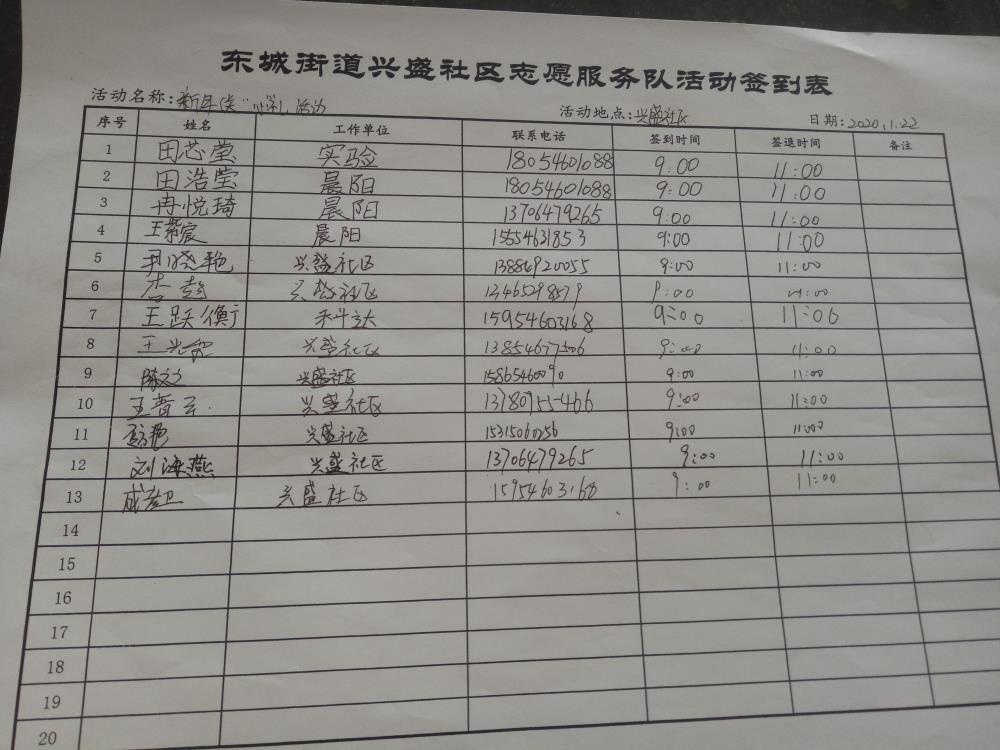 东城街道兴盛社区志愿服务队活动签到表
活动名称:新年送"心礼"活动 活动地点:兴盛社区 日期:2020.1.22
序号 姓名 工作单位 联系电话 签到时间 签退时间 备注
1 田芯莹 实验 18054601088 9:00 11:00
2 田浩莹 晨阳 18054601088 9:00 11:00
3 冉悦琦 晨阳 13706479265 9:00 11:00
4 王宸 晨阳 15554631853 9:00 11:00
5 晓艳 兴盛社区 13884920055 9:00 11:00
6 李 兴盛社区 9:00 11:00
7 王跃衡 科达 15954603168 9:00 11:00
8 王 兴盛社区 13854677506 9:00 11:00
9 陈文 兴盛社区 15865460090 9:00 11:00
10 王 兴盛社区 13780955466 9:00 11:00
11 兴盛社区 15315060256 9:00 11:00
12 刘海燕 兴盛社区 13706479265 9:00 11:00
13 成彦卫 兴盛社区 15954603168 9:00 11:00
14
15
16
17
18
19
20